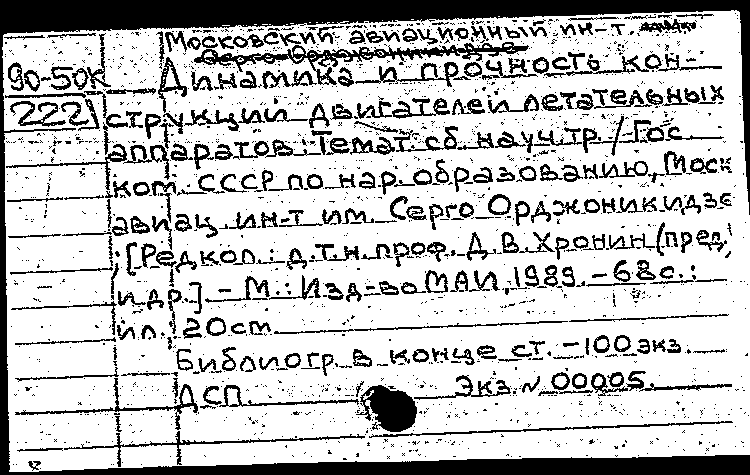 Московский авиационный ин-т.
Серго Орджоникидзе
90-50К Динамика и прочность кон-
222\ струкций двигателей летательных
аппаратов: Темат. сб. науч. тр. / Гос.
ком. СССР по нар. образованию, Моск
авиац. ин-т им. Серго Орджоникидзе
; [Редкол.: д.т.н. проф. Д.В. Хронин (пред.)
и др.]. – М.: Изд-во МАИ, 1989. – 68 с.:
ил., 20 cm.
Библиогр. в конце ст. – 100 экз.
ДСП. Экз. N 00005.